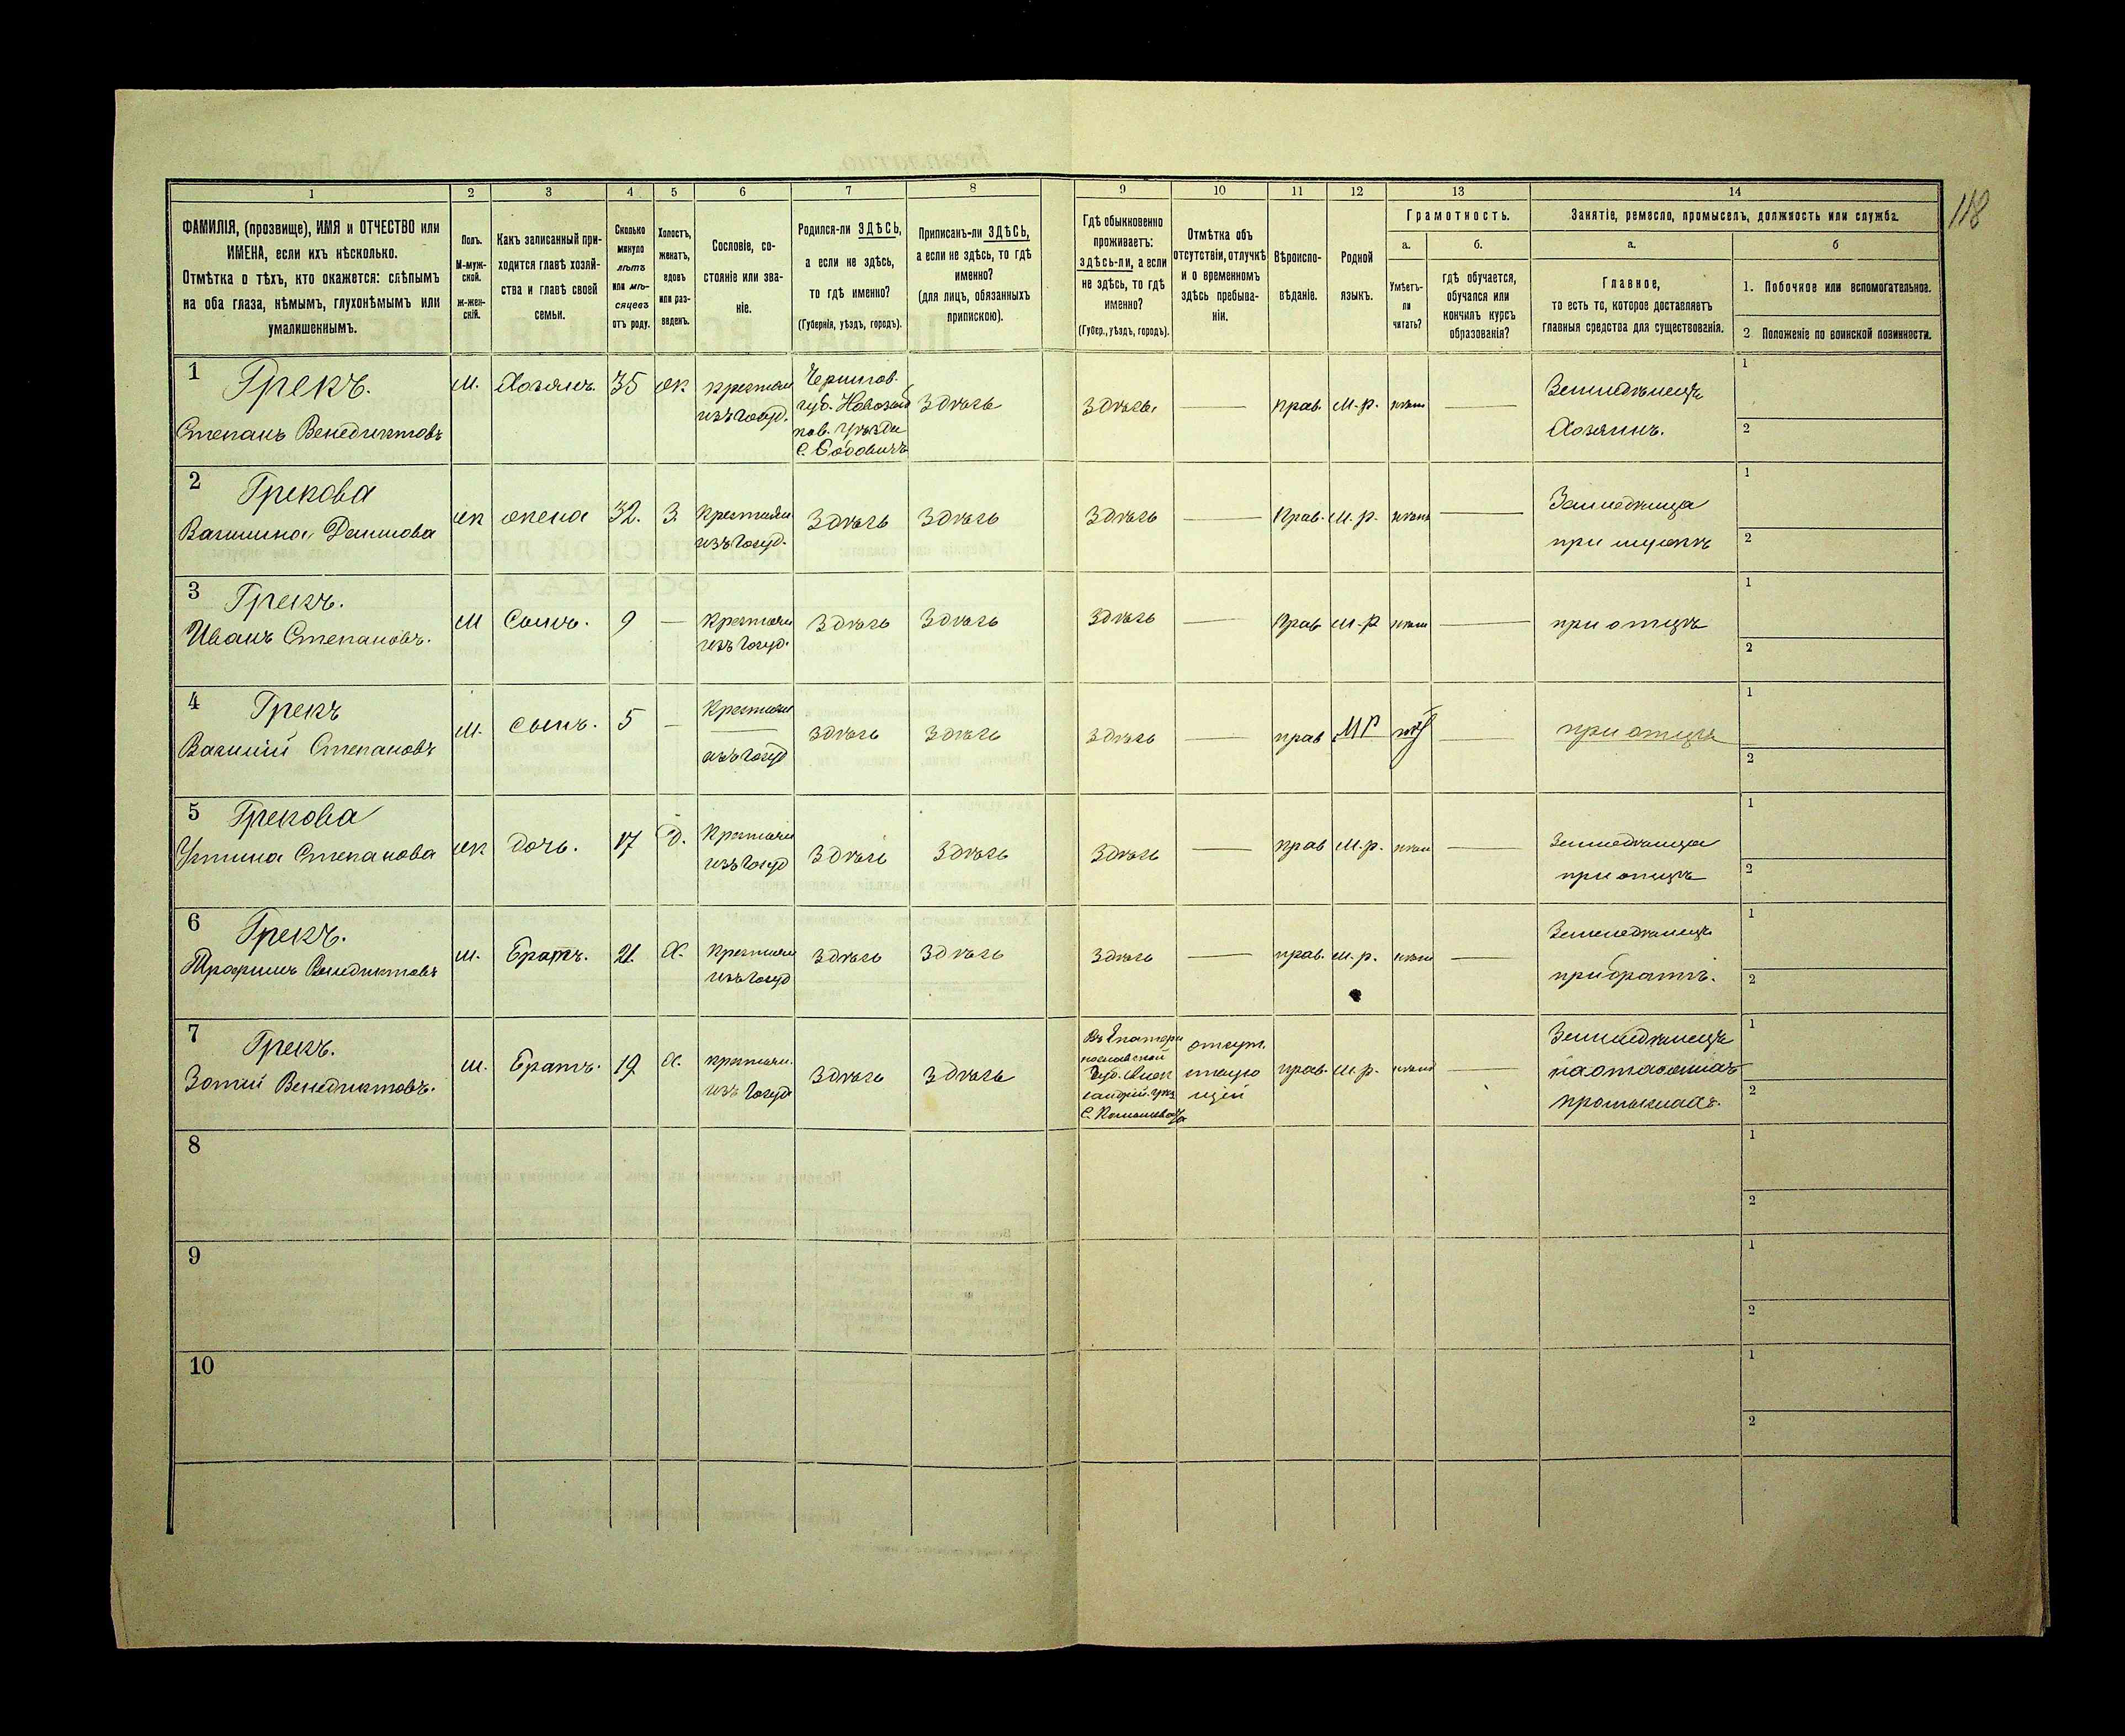 118
1 2 3 4 5 6 7 8 9 10 11 12 13 14
ФАМИЛІЯ, (прозвище), ИМЯ и ОТЧЕСТВО или
ИМЕНА, если ихъ нѣсколько.
Отмѣтка о тѣхъ, кто окажется: слѣпымъ
на оба глаза, нѣмымъ, глухонѣмымъ или
умалишеннымъ.
Полъ.
М-муж-
ской.
ж-жен-
скій.
Какъ записанный при-
ходится главѣ хозяй-
ства и главѣ своей
семьи.
Сколько
минуло
лѣтъ
или мѣ-
сяцевъ
отъ роду.
Холостъ,
женатъ,
вдовъ
или раз-
веденъ.
Сословіе, со-
стояніе или зва-
ніе.
Родился-ли ЗДѢСЬ,
а если не здѣсь,
то гдѣ именно?
(Губернія, уѣздъ, городъ).
Приписанъ-ли ЗДѢСЬ,
а если не здѣсь, то гдѣ
именно?
(для лицъ, обязанныхъ
припискою).
Гдѣ обыкновенно
проживаетъ:
здѣсь-ли, а если
не здѣсь, то гдѣ
именно?
(Губер., уѣздъ, городъ).
Отмѣтка объ
отсутствіи, отлучкѣ
и о временномъ
здѣсь пребыва-
ніи.
Вѣроиспо-
вѣданіе.
Родной
языкъ.
Грамотность.
а.
Умѣетъ-
ли
читать?
б.
гдѣ обучается,
обучался или
кончилъ курсъ
образованія?
Занятіе, ремесло, промыселъ, должность или служба.
а.
Главное,
то есть то, которое доставляетъ
главныя средства для существованія.
б
1. Побочное или вспомогательное.
2 Положеніе по воинской повинности.
1
Грекъ.
Степанъ Венедиктовъ
м.
Хозяинъ
35
ж
крестьян
изъ госуд.
Чернигов.
губ. Новозыб
ков. уѣзда
с.
Здѣсь
Здѣсь.
прав.
м.р.
Земледѣлецъ
Хозяинъ.
1
2
2
Грекова
Данилова
ж
жена
32.
З.
крестьян
изъ госуд.
Здѣсь
Здѣсь
Здѣсь
прав.
м.р.
при мужѣ
1
2
3
Грекъ.
Иванъ Степановъ.
м
Сынъ.
9
крестьян
изъ госуд.
Здѣсь
Здѣсь
Здѣсь
прав
м.р
при отцѣ
1
2
4
Грекъ
Василій Степановъ
м.
сынъ.
5
Крестьян
изъ госуд
здѣсь
здѣсь
здѣсь
прав
МР
при отцѣ
1
2
5
Грекова
Устина Степанова
ж
дочь.
17
д.
Крестьян
изъ госуд
Здѣсь
Здѣсь
Здѣсь
прав
м.р.
при отцѣ
1
2
6
Грекъ.
Трофимъ Венедиктовъ
м.
Братъ.
21.
Х.
Крестьян
изъ госуд
здѣсь
здѣсь
здѣсь
прав.
м.р.
Земледѣлецъ
при братѣ.
1
2
7
Грекъ.
Зотий Венедиктовъ.
м.
Братъ.
19
Х.
крестьян.
изъ госуд
Здѣсь
Здѣсь
Въ Екатери
нославской
губ.
отсут.
ствую
щій
прав.
м.р.
Земледѣлецъ
промыслахъ.
1
2
8
1
2
9
1
2
10
1
2